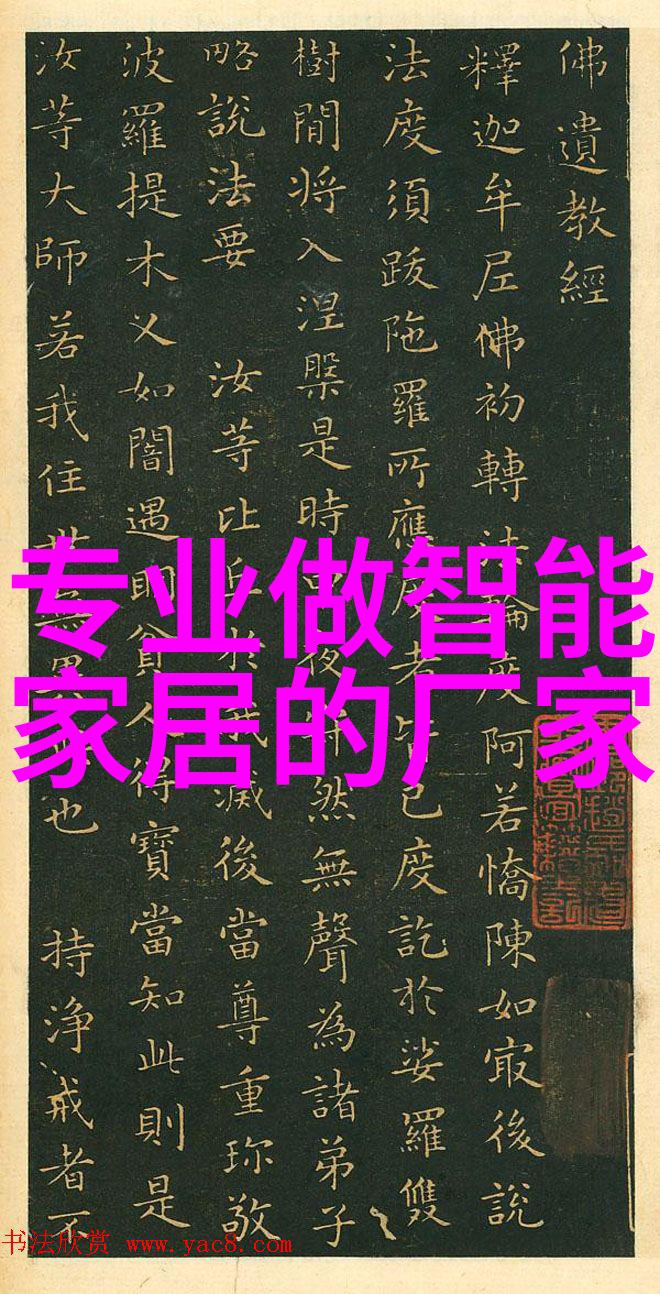 佛遺教經
釋迦牟尼佛初轉法輪度阿若憍陳如㝡後說
法度須跋陁羅所應度者皆已度訖於娑羅雙
樹間將入涅槃是時中夜寂然無聲為諸弟子
略說法要 汝等比丘於我滅後當尊重珎敬
波羅提木乂如闇遇明貧人得寶當知此則是
汝等大師若我住世無異此也 持淨戒者不
专业做智能
家居的厂家
书法欣赏 www.yac8.com